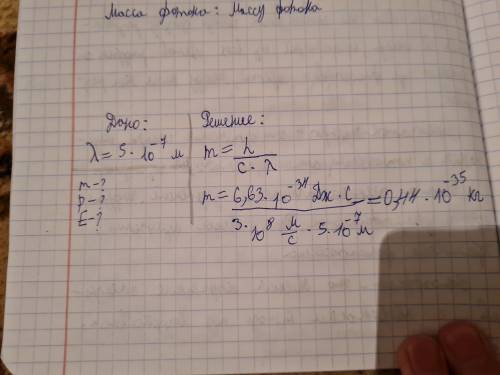 Масса фотока: Массу фотока
Дано:
λ = 5 · 10⁻⁷ м
m - ?
p - ?
E - ?
Решение:
m = h / (c · λ)
m = 6,63 · 10⁻³⁴ Дж · с / (3 · 10⁸ м/с · 5 · 10⁻⁷ м) = 0,44 · 10⁻³⁵ кг